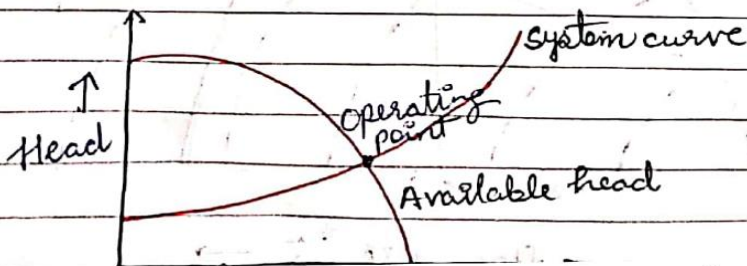 system curve
Operating
point
Head
Available head